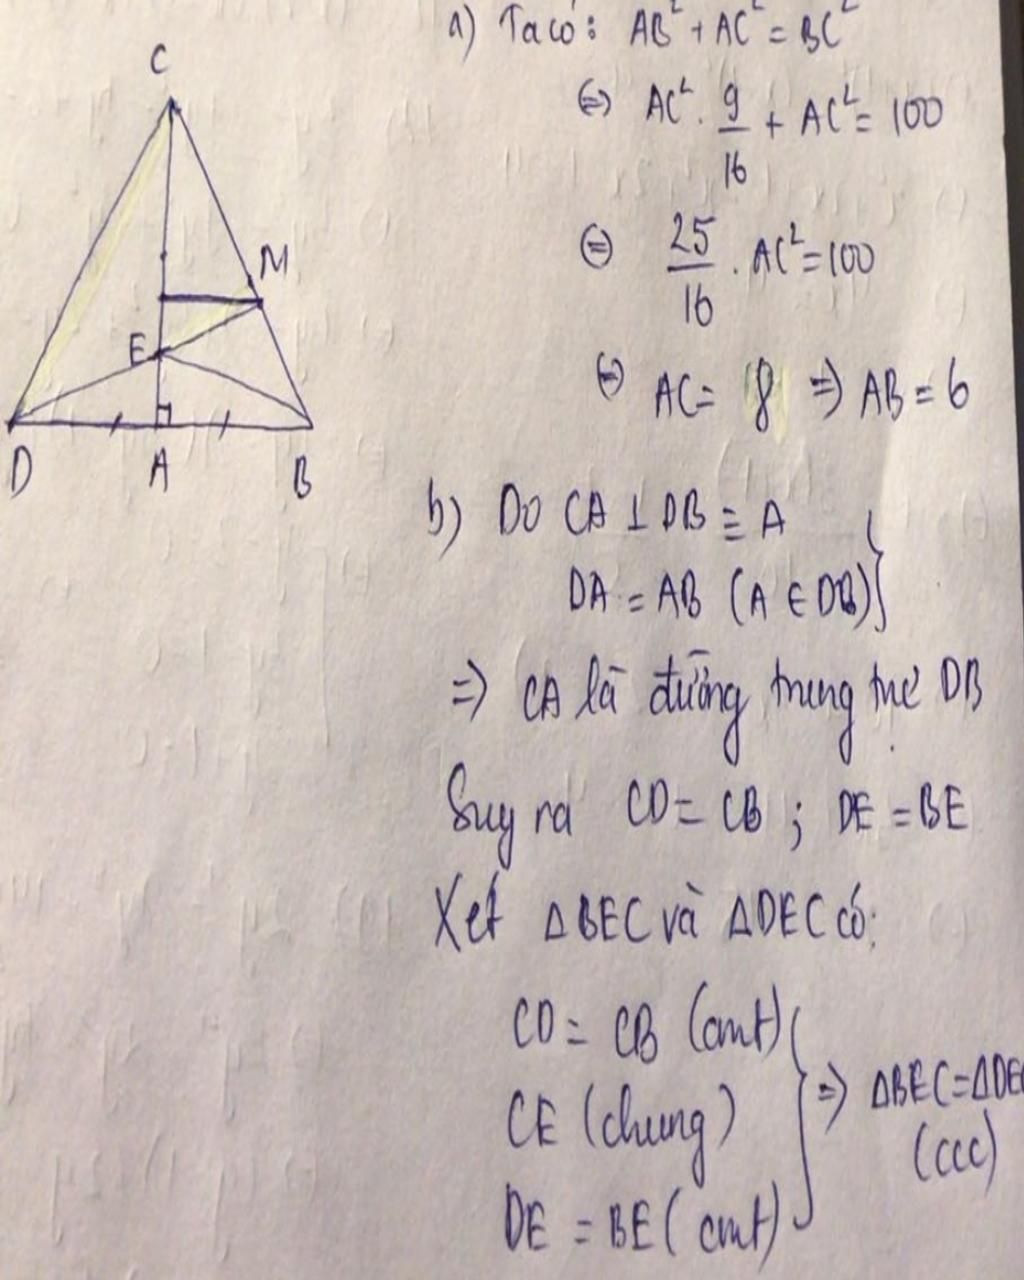 C
M
E
D A B
a) Ta có: AB² + AC² = BC²
⇔ AC² . 9/16 + AC² = 100
⇔ 25/16 . AC² = 100
⇔ AC = 8 ⇒ AB = 6
b) Do CA ⊥ DB ≡ A
DA = AB (A ∈ DB)
⇒ CA là đường trung trực DB
Suy ra CD = CB ; DE = BE
Xét ΔBEC và ΔDEC có:
CD = CB (cmt)
CE (chung) ⇒ ΔBEC = ΔDEC
(ccc)
DE = BE (cmt)